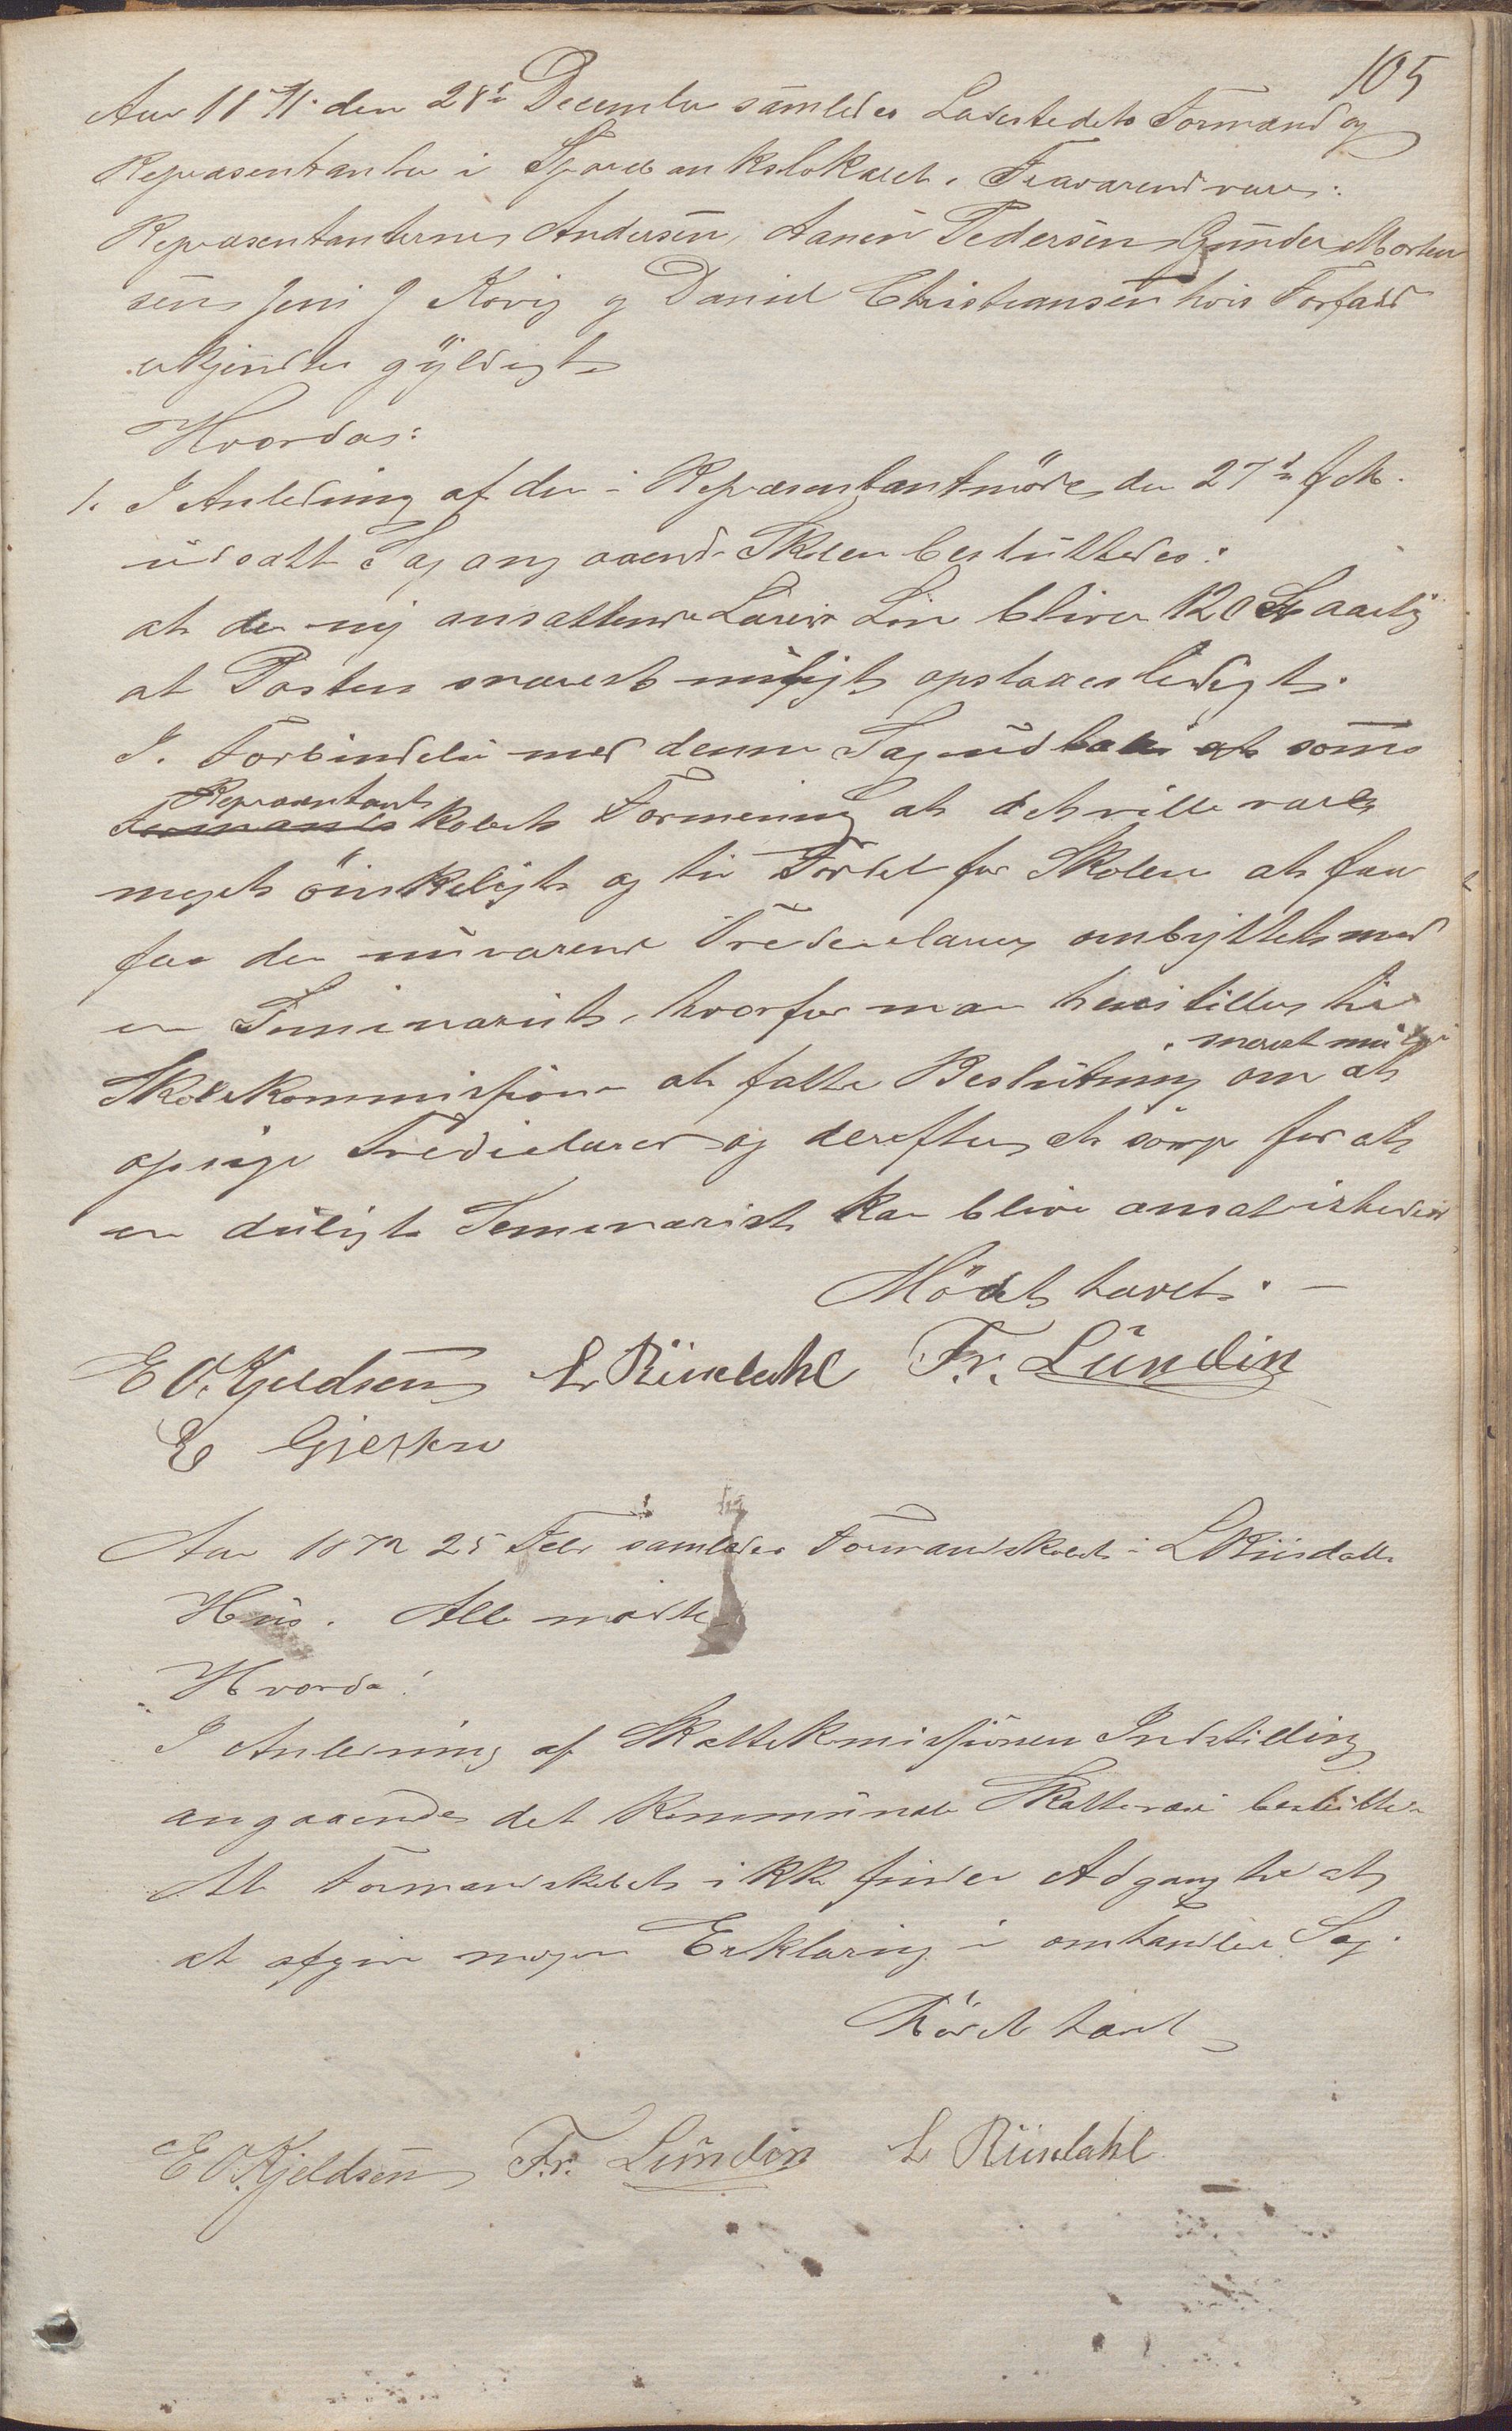 105
Aar 1871 den 28de December samledes Ladestedets Formænd og
Repræsentanter i Sparebankslokalet. Fraværende vare:
Repræsentanterne Andersen, Aanen Pedersen Gunder Morten
sen Jens J Kovig og Daniel Christiansen hvis Forfald
erkjendtes gyldigt
Hvordas:
1. I Anledning af den i Repræsentantmöde den 27de f. M.
udsatte Sag angaaende Skolen besluttedes:
at den ny ansættende Lærers Lön bliver 120 Sp aarlig
at Posten snarest muligt opslaaes ledigt.
I Forbindelse med denne Sag udtales at som
Repræsentant
Formandskabets Formening at det vilde være
meget önskeligt og til Fordel for Skolen at faa
faa den nuværende Tredielærer ombyttet med
en Seminarist, hvorfor man henstiller til
snarest mulig
Skolekommissionen at fatte Beslutning om at
opsige Tredielærer og derefter at sörge for at
en duelig Seminarist kan blive ansat istedet
Mödet hævet. —
E O. Kjeldsen L Riisdahl Fr. Lundin
E Gjertsen
Aar 1872 25 Febr samledes Formandskabet i L Riisdahls
Huus. Alle mödte
Hvorda:
I Anledning af Skattekomissionen Indstilling
angaaende det kommunale Skattevæsen besluttes
At Formandskabet ikke finder Adgang til at
at afgive nogen Erklæring i omhandlede Sag.
Mödet hævet
E O. Kjeldsen Fr. Lundin L Riisdahl